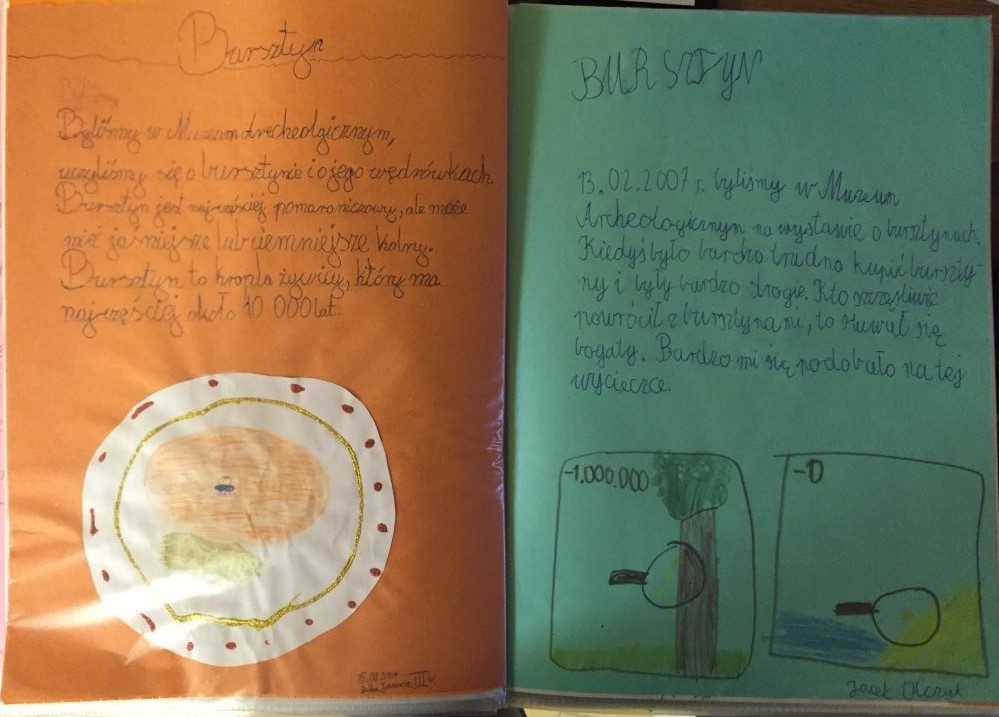 Bursztyn
Byliśmy w Muzeum Archeolgicznym,
uczyliśmy się o bursztynie i o jego wędrówkach.
Bursztyn jest najczęściej pomarańczowy, ale może
mieć jaśniejsze lub ciemniejsze kolory.
Bursztyn to kropla żywicy, który ma
najczęściej około 10 000 lat.
III
BURSZTYN
13.02.2007 r. byliśmy w Muzeum
Archeologicznym na wystawie o bursztynach.
Kiedyś było bardzo trudno kupić burszty-
ny i były bardzo drogie. Kto szczęśliwie
powrócił z bursztynami, to stawał się
bogaty. Bardzo mi się podobało na tej
wycieczce.
-1.000.000
-10
Jacek Olczyk